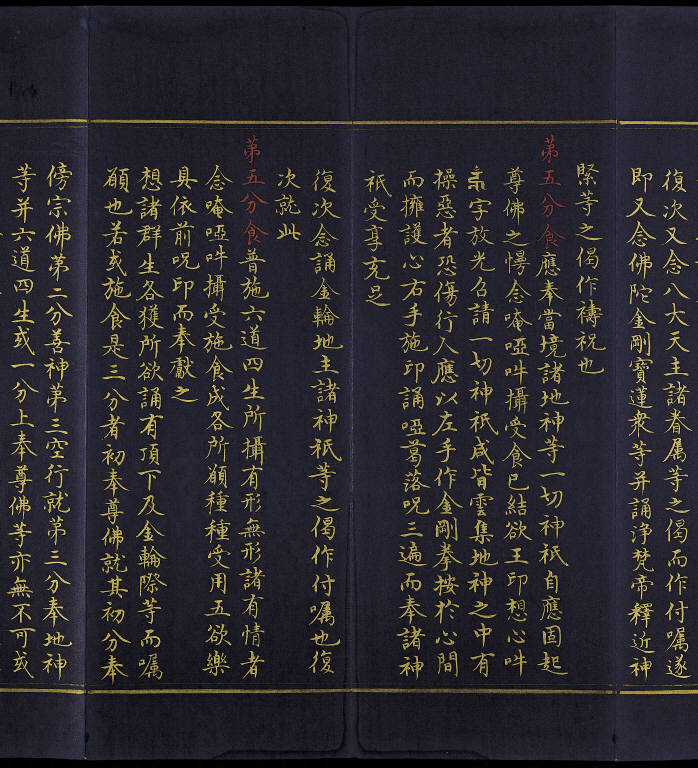 復次又念八大天主諸眷属等之偈而作付嘱遂
即又念佛陀金剛寶蓮衆等并誦淨梵帝釋近神
緊等之偈作禱祝也
第五分食應奉當境諸地神等一切神祇自應固起
尊佛之愕念唵啞吽攝受食已結欲王印想心吽
字放光召請一切神祇咸皆雲集地神之中有
操惡者恐傷行人應以左手作金剛拳按於心間
而擁護心右手施印誦啞葛落呪三遍而奉諸神
祇受享充足
復次念誦金輪地主諸神祇等之偈作付嘱也復
次就此
第五分食普施六道四生所攝有形無形諸有情者
念唵啞吽攝受施食成各所願種種受用五欲樂
具依前呪印而奉獻之
想諸群生各獲所欲誦有頂下及金輪際等而嘱
願也若或施食是三分者初奉尊佛就其初分奉
傍宗佛第二分善神第三空行就第三分奉地神
等并六道四生或一分上奉尊佛等亦無不可或